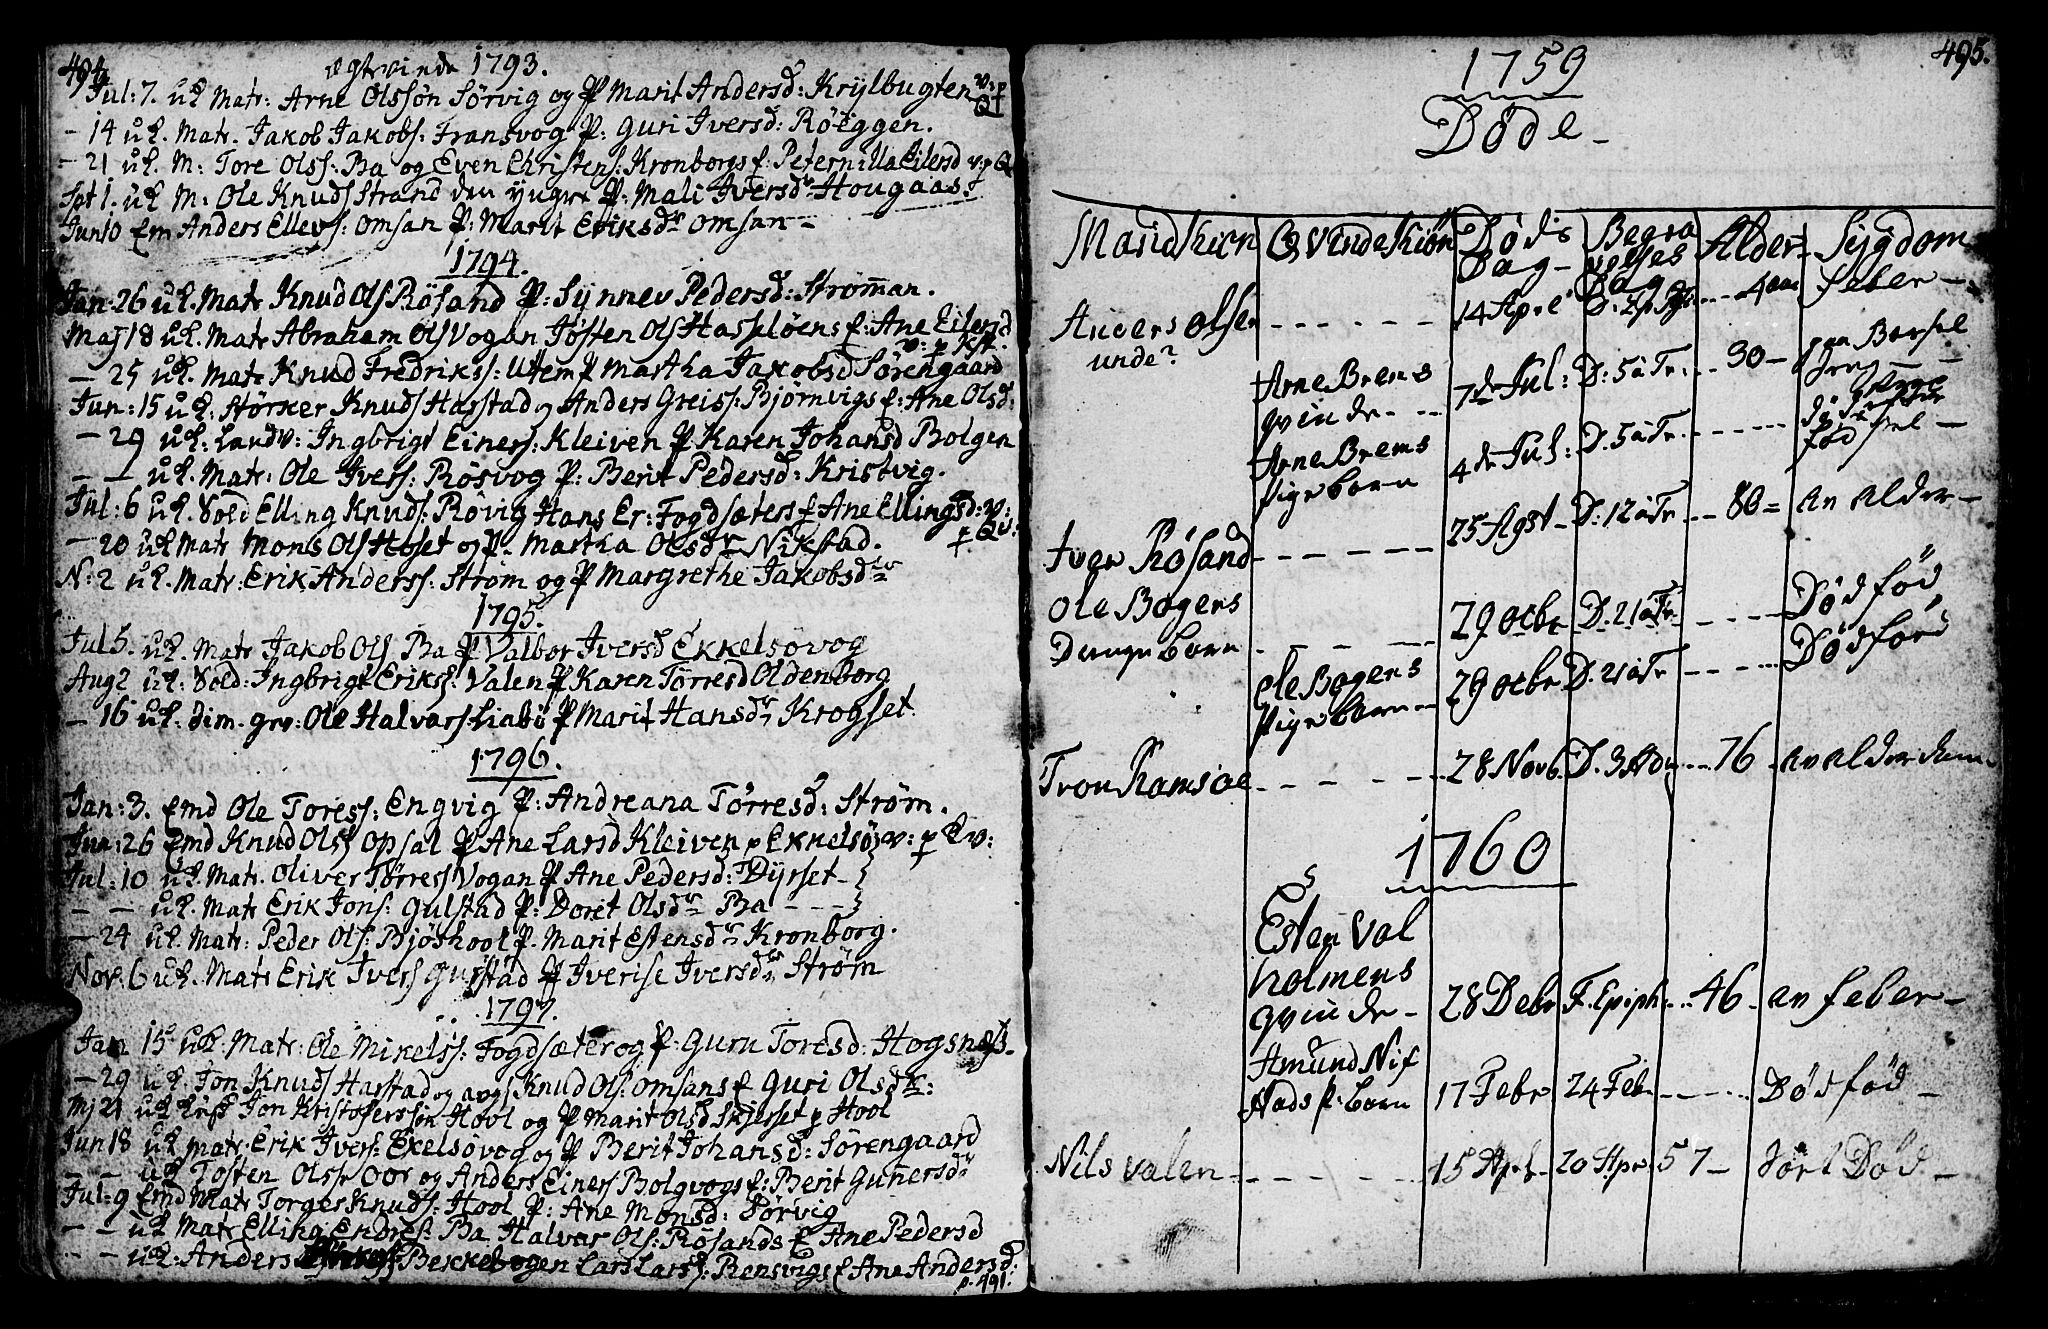 494 ægtevinde 1793.
Jul: 7. uk Matr: Arne Olssøn Sørvig og P Marit Andersd: Krÿlbugten v: p Q
– 14 uk. Matr. Jakob Jakobs: Fransvog P. Guri Iversd: Röeggen.
– 21 uk. M: Tore Olss: Ba og Even Christens: Kronborgs f: Petern:lla Eilersd v: p Q
Spt 1. uk M: Ole Knuds Strand den yngre P. Mali Iversd Hougaas.
Jun 10 Em Anders Ellevs: Omsan P: Marit Eriksdr Omsan –
1794.
Jan: 26 uk. Matr Knud Ols Rösand P: Synnev Pedersd: Strømman.
Maj 18 uk. Matr Abraham Ols Vogan Tosten Ols Hasseløens f: Ane Eilersd
v: p Kst.
– 25 uk. Matr Knud Fredrikss: Utem P Martha Jakobsd Sørengaard
Jun: 15 uk: Størker Knuds Harstad og Anders Greiss: Bjørnvigs f: Ane Olsd:
– 29 uk: Landv: Ingbrigt Einers: Kleiven P Karen Johansd Bolgen
– – uk. Matr: Ole Ivers: Røsvog P: Berit Pedersd: Kristvig.
Jul: 6 uk. Sold Elling Knuds: Røvig Hans Er: Fogdsæters f Ane Ellingsd: v:
– 20 uk Matr Mons Ols Hoset og P. Martha Olsdr Nikstad. p Qv:
N: 2 uk. Matr: Erik Anderss: Strøm og P Margrethe Jakobsdr
1795.
Jul 5. uk. Matr Jakob Ols Ba P Valbor Iversd Ekkelsøvog
Aug 2 uk: Sold: Ingbrigt Erikss: Valen P Karen Torresd Oldenborg
– 16 uk. dim. gev: Ole Halvars Liabö P Marit Hansdr Krogset.
1796.
Jan: 3. Emd Ole Toress: Engvig P: Andreana Tørresd: Strøm.
Jun: 26 Emd Knud Olss Opsal P Ane Larsd Kleiven p Exnelsö v: p Qv:
Jul: 10 uk. Matr. Oliver Tørress Vogan P Ane Pedersd: Dÿrset –
– – uk. Matr Erik Jons: Gulstad P: Doret Olsdr Ba – – –
– 24 uk. Matr: Peder Ols: Bjöshool P. Marit Estensdr Kronborg.
Nov. 6 uk. Matr Erik Ivers Gulstad P Iverise Iversdr Strøm
1797.
Jan 15 uk. Matr: Ole Mikelss: Fogdsæter og P: Guru Toresd: Hogsnæs.
– 29 uk. Jon Knuds Harstad og Knud Ols: Omsans f Guri Olsdr:
Mj 21 uk Jon Kristoferssøn Hool og P Marit Olsd Skjerset p Hool
Jun 18 uk Matr: Erik Ivers: Ekelsøvog og P Berit Johansd: Sørengaard
– – uk Tosten Olss Oor og Anders Einers Bolgvogs f: Berit Gunersdr
Jul: 9 Emd Matr Torger Knuds: Hool P: Ane Monsd: Sørvig
– – uk Matr Elling Endres: Ba Halvar Ols: Røsands f Ane Pedersd
– – uk: Anders Bekkebogen Lars Lars: Rensvigs f Ane Andersd:
p. 491.
495.
1759
Döde –
Mandkiøn Qvindekiön Döds Dag – Begra velses Dag Alder – Sygdom
Anders Olsen – – – – – 14 Aprl – – – 4 aar feber –
unde?
Arne Brems qvinde – – 7de Jul: D: 5 à Tr: – – 30 – paa Barsel
Arne Brems Pigebarn 4de Jul: D. 5 à Tr. – – – – fødsel –
Iver Rösand – – – – – 25 Agst – D: 12 à Tr – – 80 = av alder –
Ole Bogers Drengebarn – – – – 29 Octbr D. 21 à Tr – – – – Dödföd
Ole Bogens Pigebarn – 29 Octbr D. 21 à Tr – – – – Dödförd
Tron Ramsöe – – – – – 28 Novb. D. 3 Adv – – 76 – av alderdom
1760
Esten Val
holmens
qvinde – 28 Debr F. Epiph – – 46 – av feber –
Amund Nif
stads P. barn 17 Febr 24 Febr – – – – Dödföd –
Nils Valen – – – – – 15 Apl – 20 Apr 57 – Död –